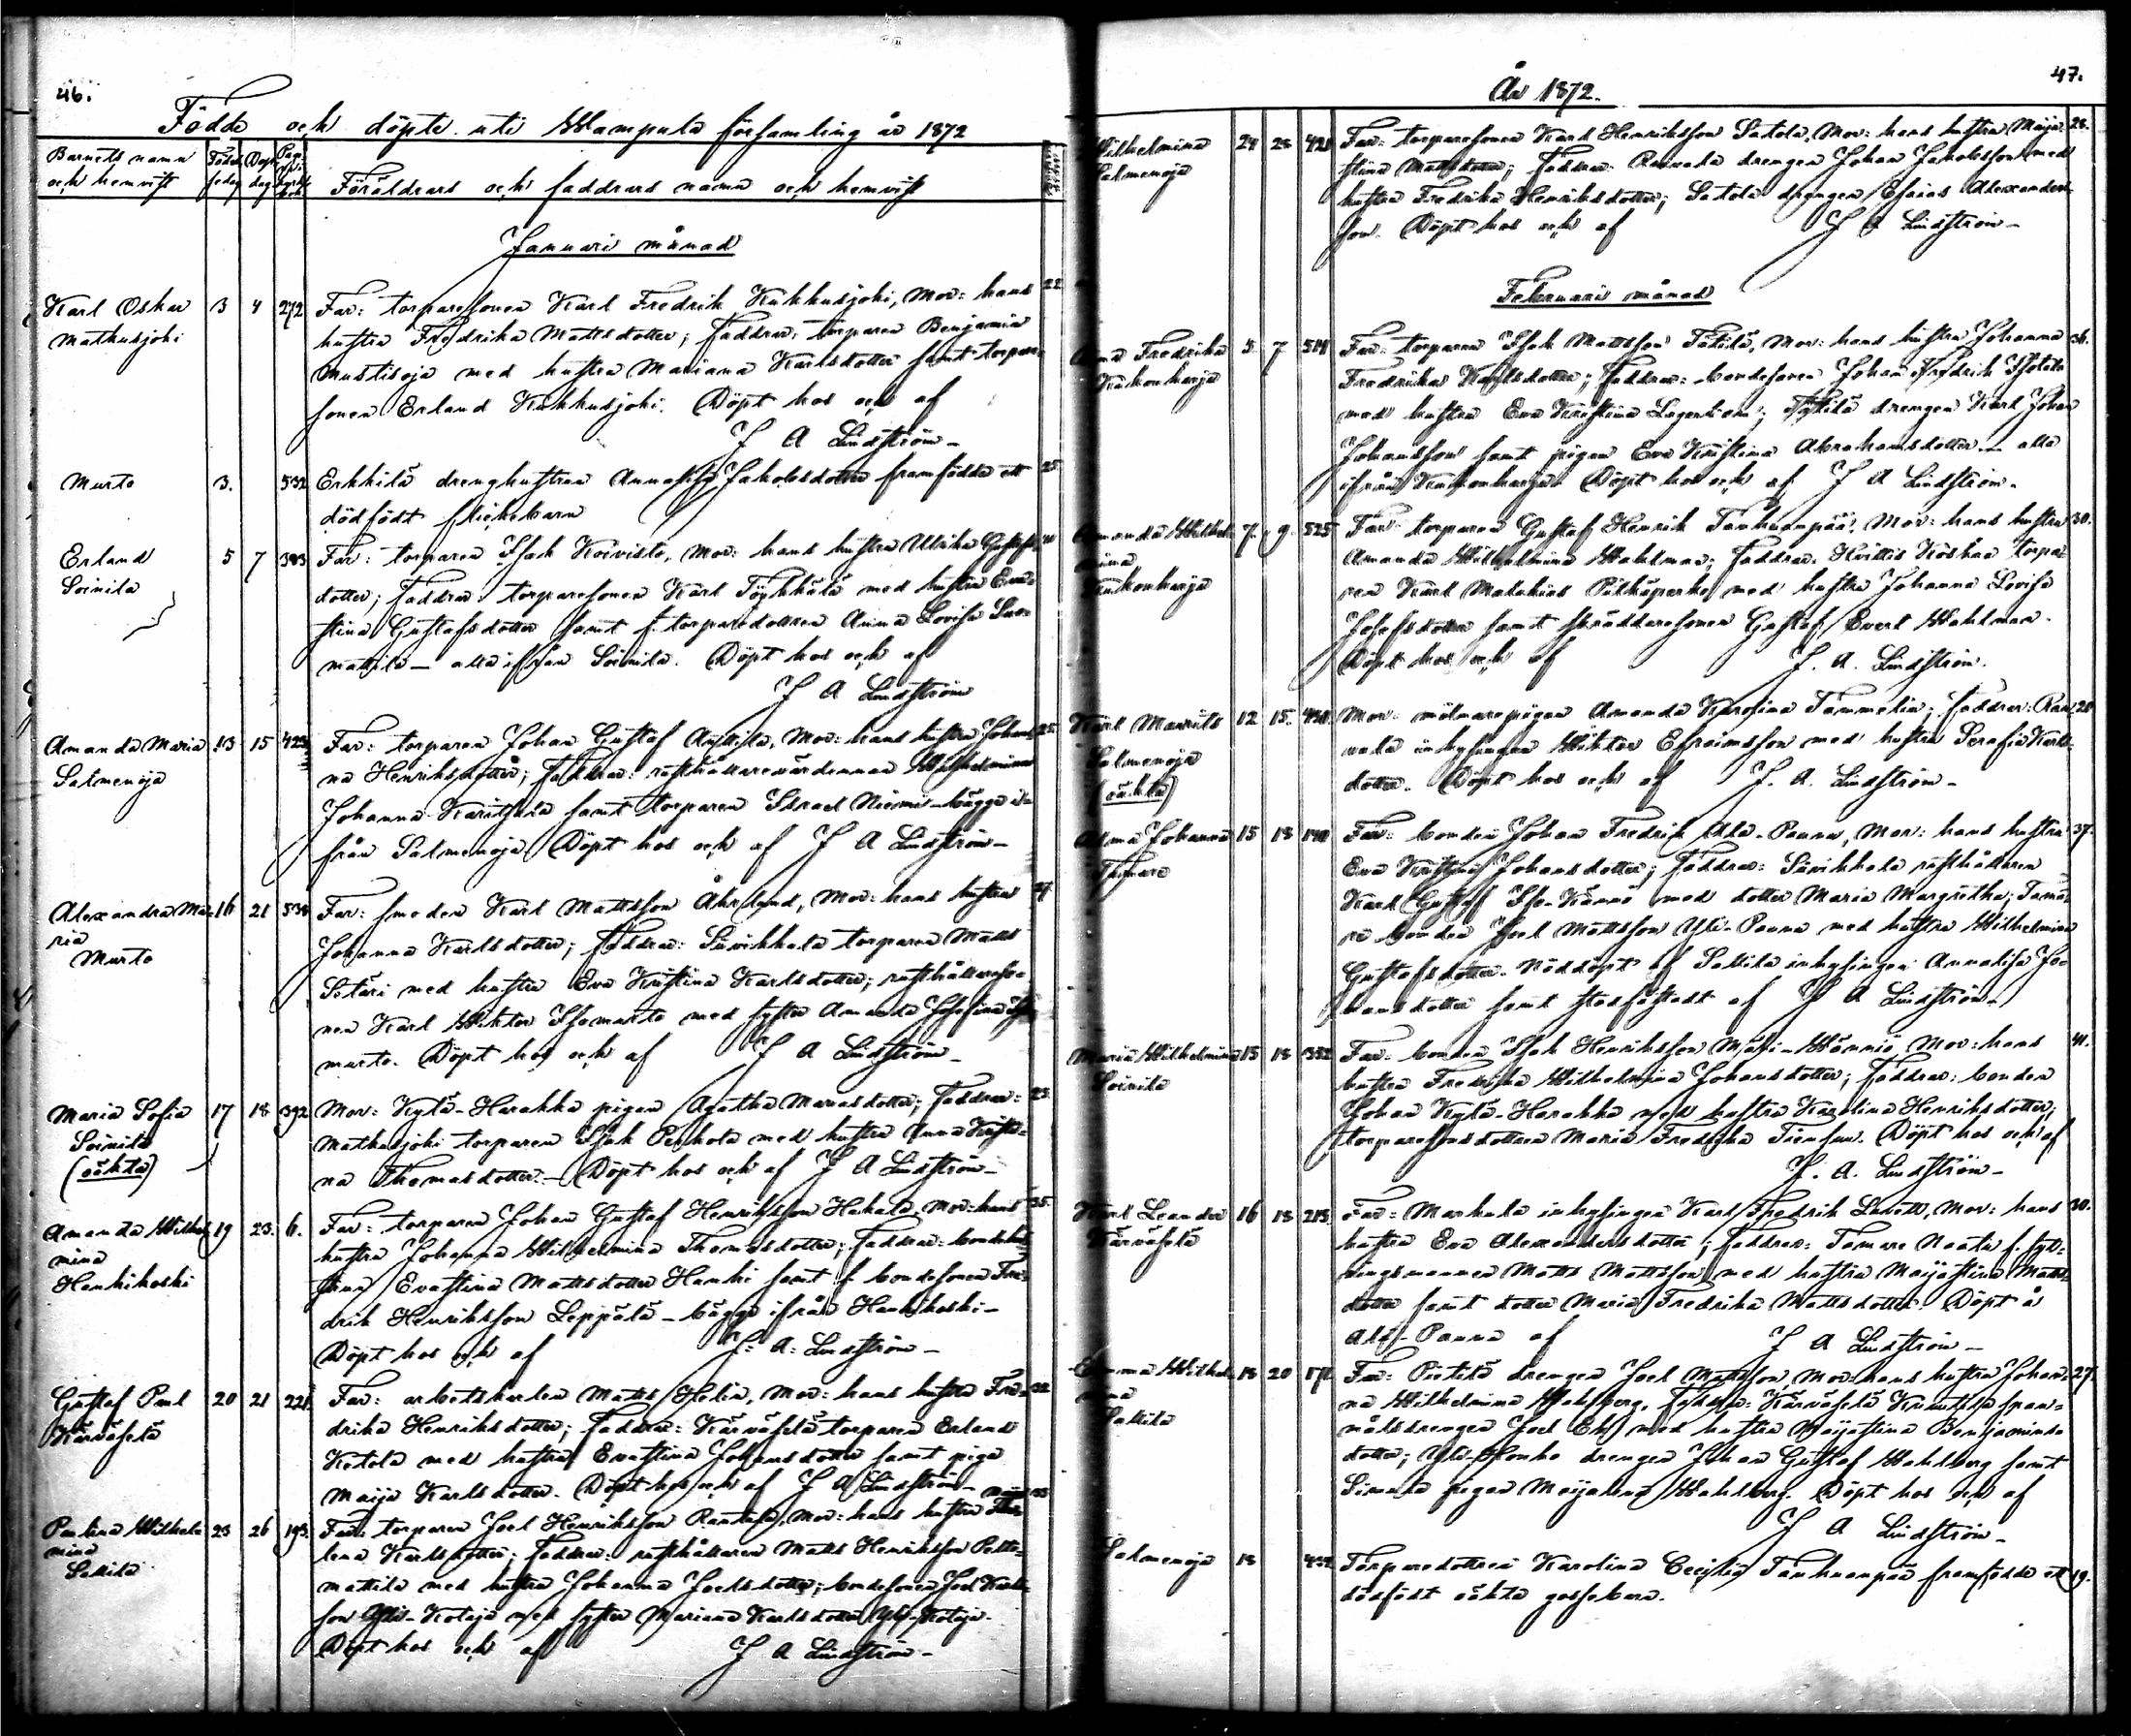 46.
Födde och döpte uti Wampula församling år 1872
Barnets namn och hemvist
Födelsedag
Dopdag
Pag. i kyrkbok
Föräldrars och faddrars namn och hemvist
Januari månad
Karl Oskar 3 4 272 Far: torparesonen Karl Fredrik Kukkusjoki, Mor: hans 22
Matkusjoki hustru Fredrika Mattsdotter; faddrar: torparen Benjamin
Mustisoja med hustru Mariana Karlsdotter samt torpare-
sonen Erland Kukkusjoki. Döpt hos och af
J A Lindström
Murto 3. 532 Erkkilä drenghustrun Annalisa Jakobsdotter framfödde ett 25
dödfödt flickebarn
Erland 5 7 Far: torparen Isak Koivisto, Mor: hans hustru Ulrika Gustafs-
Soinila dotter; faddrar: torparesonen Karl Töykkälä med hustru Eva-
stina Gustafsdotter samt f. torparedottren Anna Lovisa
alla ifrån Soinila. Döpt hos och af
J A Lindström
Amanda Maria 13 15 423 Far: torparen Johan Gustaf Anttila, Mor: hans hustru Johan- 25
Salmenoja na Henriksdotter; faddrar: rusthållarevärdinnan Wilhelmina
Johanna Karitsala samt torparen Israel Niemi - bägge i-
från Salmenoja. Döpt hos och af J A Lindström
Alexandra Ma- 16 21 Far: smeden Karl Mattsson Åhrlund, Mor: hans hustru
ria Johanna Karlsdotter; faddrar: Säwikkala torparen Matts
Murto Sötäri med hustru Eva Kristina Karlsdotter; rusthållareso-
nen Karl Wiktor Isomurto med syster Amanda Josefina Iso-
murto. Döpt hos och af J A Lindström
Maria Sofia 17 18 392 Mor: Kylä-Harakka pigan Agatha Mariasdotter; faddrar: 23
Soinila Matkusjoki torparen Isak Perkola med hustru Anna Kristi-
(oäkta) na Thomasdotter. Döpt hos och af J A Lindström
Amanda Wilhel- 19 23. 6. Far: torparen Johan Gustaf Henriksson Hakala, Mor: hans 35
mina hustru Johanna Wilhelmina Thomasdotter; faddrar:
Hankikoski Evastina Mattsdotter Hanhi samt f. bondesonen Fre-
drik Henriksson Leppälä - bägge ifrån Hankikoski -
Döpt hos och af J. A. Lindström
Gustaf Paul 20 21 221 Far: arbetskarlen Matts Helin, Mor: hans hustru Fre- 32
Kärväselä drika Henriksdotter; faddrar: Kärväselä torparen Erland
Ketola med hustru Evastina Johansdotter samt piga
Maija Karlsdotter. Döpt hos och af J A Lindström
Paulina Wilhel- 23 26 193 Far: torparen Joel Henriksson Rantala, Mor: hans hustru
mina lena Karlsdotter; faddrar: rusthållaren Matts Henriksson Pelto-
Sallila mattila med hustru Johanna Joelsdotter; bondesonen Joel Karls-
son Yli-Kotaja med syster Mariana Karlsdotter Yli-Kotaja.
Döpt hos och af J A Lindström
47.
År 1872.
Wilhelmina 24 28 421 Far: torparesonen Karl Henriksson Satola, Mor: hans hustru Maja- 28.
Salmenoja stina Mattsdotter; faddrar: drengen Johan Jakobsson med
hustru Fredrika Henriksdotter; Satola drengen Esaias Alexanders-
son. Döpt hos och af J A Lindström
Februari månad
Anna Fredrika 5 7 Far: torparen Isak Mattsson Mor: hans hustru Johanna 36.
Kukonharja Fredrika Karlsdotter; faddrar: bondesonen Johan Fredrik
med hustru Eva Kristina drengen Karl Johan
Johansson samt pigan Eva Kristina Abrahamsdotter - alla
ifrån Kukonharja. Döpt hos och af J A Lindström.
Amanda Wilhel- 7. 9. 525 Far: torparen Gustaf Henrik Tanhuanpää, Mor: hans hustru 30.
mina Amanda Wilhelmina Wahlman; faddrar: torpa-
Kukonharja ren Karl Malakias med hustru Johanna Lovisa
Josefsdotter samt skräddaresonen Gustaf Evert Wahlman.
Döpt hos och af J. A. Lindström.
Karl Maurits 12 15. Mor: mölnarepigan Amanda Karolina Tammelin; faddrar: 28
Salmenoja inhysingen Wiktor Efraimsson med hustru Serafia Karls-
(oäkta) dotter. Döpt hos och af J. A. Lindström
Alma Johanna 15 18 Far: bonden Johan Fredrik Ala-Panna, Mor: hans hustru 37.
Tamare Eva Kristina Johansdotter; faddrar: Säwikkala rusthållaren
Karl Gustaf Iso-Kännö med dotter Maria Margretha; Tama-
re bonden Joel Mattsson Yli-Panna med hustru Wilhelmina
Gustafsdotter. Nöddöpt af Sallila inhysingen Annalisa Jo-
hansdotter samt stadfästadt af J A Lindström
Maria Wilhelmina 15 18 352 Far: bonden Isak Henriksson Mäki-Wänniö, Mor: hans 41.
Soinila hustru Fredrika Wilhelmina Johansdotter; faddrar: bonden
Johan Kylä-Harakka med hustru Karolina Henriksdotter;
torparesonsdottern Maria Fredrika Tiensuu. Döpt hos och af
J. A. Lindström
Karl Leander 16 18 213. Far: Markula inhysingen Karl Fredrik Mor: hans 30.
Kärväselä hustru Eva Alexandersdotter; faddrar: Tamare
Matts Mattsson med hustru Maijastina Matts-
dotter samt dotter Maria Fredrika Mattsdotter. Döpt å
Ala-Panna af J A Lindström
Emma Wilhel- 18 20 171 Far: Pietilä drengen Joel Mattsson, Mor: hans hustru Johan- 27.
mina na Wilhelmina Wahlberg. Faddrar: Kärväselä span-
Sallila målsdrengen Joel Ek med hustru Maijastina Benjamins-
dotter; Yli-Honko drengen Johan Gustaf Wahlberg samt
Simula pigan Maijalena Wahlberg. Döpt hos och af
J A Lindström
Salmenoja 18 Torparedottren Karolina Cecilia Tanhuanpää framfödde ett 19.
dödfödt oäkta gossebarn.